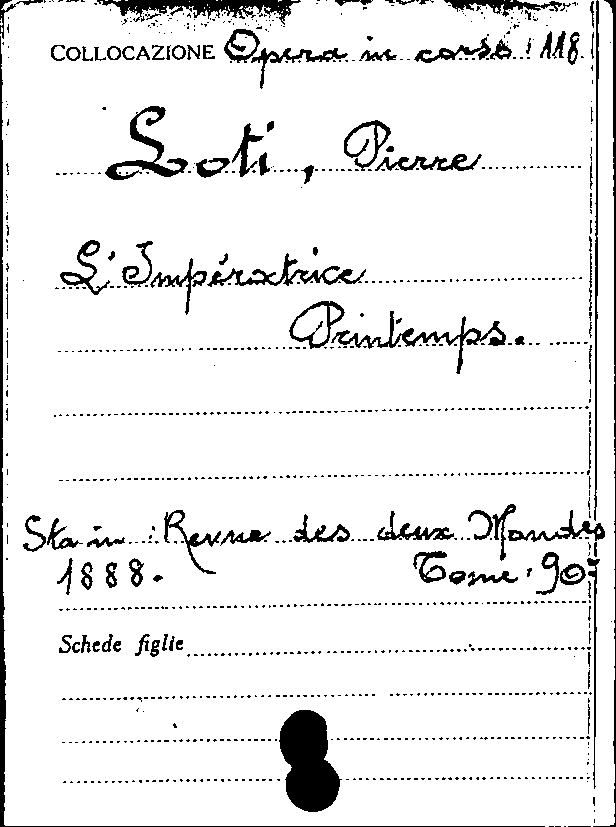 COLLOCAZIONE Opera in corso: 118
Loti, Pierre
L'Impératrice
Printemps.
Sta in: Revue des deux Mondes
1888. Tome: 90º
Schede figlie